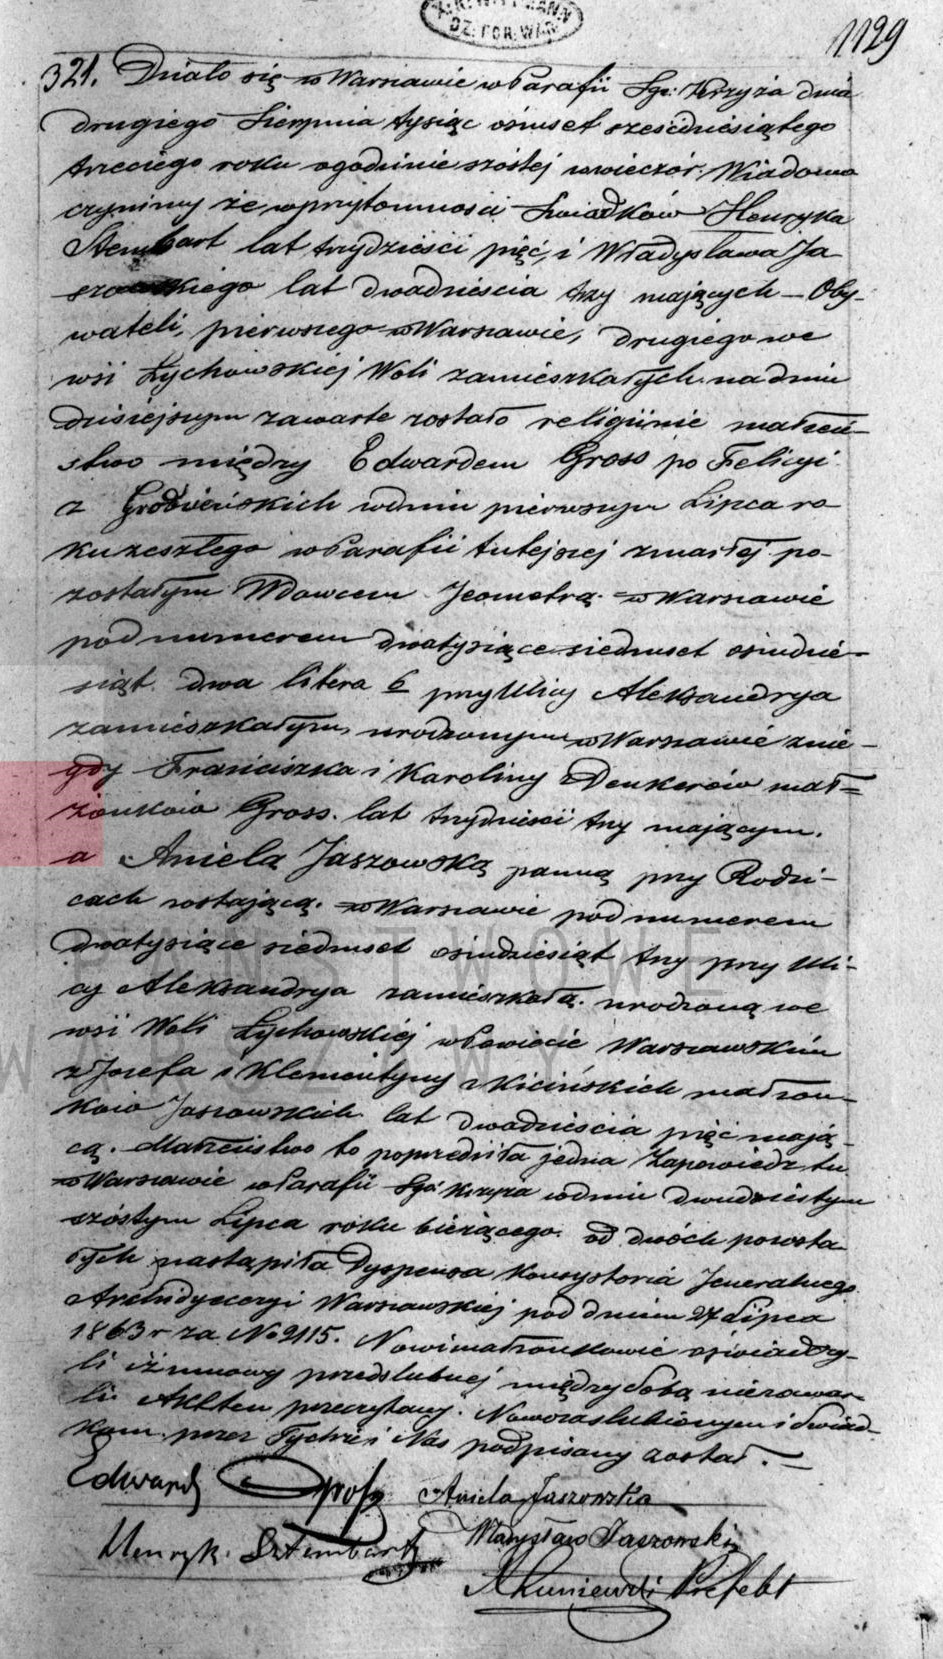 1129
DZ. POR. WAR.
321. Działo się w Warszawie w Parafii Sgo: Krzyża dnia
drugiego Sierpnia tysiąc ośmset sześćdziesiątego
trzeciego roku o godzinie szóstej wwieczór. Wiadomo
czynimy że w przytomności Swiadków Henryka
Stembart lat trzydzieści pięć, i Władysława Ja
szowskiego lat dwadzieścia trzy mających – Oby-
wateli, pierwszego w Warszawie, drugiego we
wsi Łychowskiéj Woli zamieszkałych na dniu
dzisiejszym zawarte zostało religijnie małżeń-
stwo między Edwardem Gross po Felicyi
z Grodzieńskich w dniu pierwszym Lipca ro-
ku zeszłego w Parafii tutejszej zmarłej po-
zostałym Wdowcem Jeometrą w Warszawie
pod numerem dwatysiące siedmset ośmdzie-
siąt dwa litera b przy Ulicy Aleksandrya
zamieszkałym, urodzonym w Warszawie z nie-
gdy Franciszka i Karoliny z Denkerów mał=
żonków Gross. lat trzydzieści trzy mającym.
a Anielą Jaszowską panną przy Rodzi-
cach zostającą. w Warszawie pod numerem
dwatysiące siedmset ośmdziesiąt trzy przy Uli-
cy Aleksandrya zamieszkałą. urodzoną we
wsi Woli Łychowskiéj w Powiecie Warszawskim
z Józefa i Klementyny z Kicińskich małżon-
ków Jaszowskich lat dwadzieścia pięć mają-
cą. Małżeństwo to poprzedziła jedna Zapowiedz tu
w Warszawie w Parafii Sgo Krzyża w dniu dwudziestym
szóstym Lipca roku bieżącego. od dwóch pozosta
łych nastąpiła Dyspensa Konsystorza Jeneralnego
Archidyecezyi Warszawskiéj pod dniem 27 Lipca
1863 r za No 2115. Nowi małżonkowie oświadczy-
li iż umowy przedślubnej między sobą nie zawar
li. Akt ten przeczytany. Nowozaślubionym i Świad-
kom. przez Tychże i Nas podpisany został. –
Edward Gross Aniela Jaszowska
Henryk. Sztembartt Władysław Jaszowski
Prefekt
PAŃSTWOWE
WARSZAWY